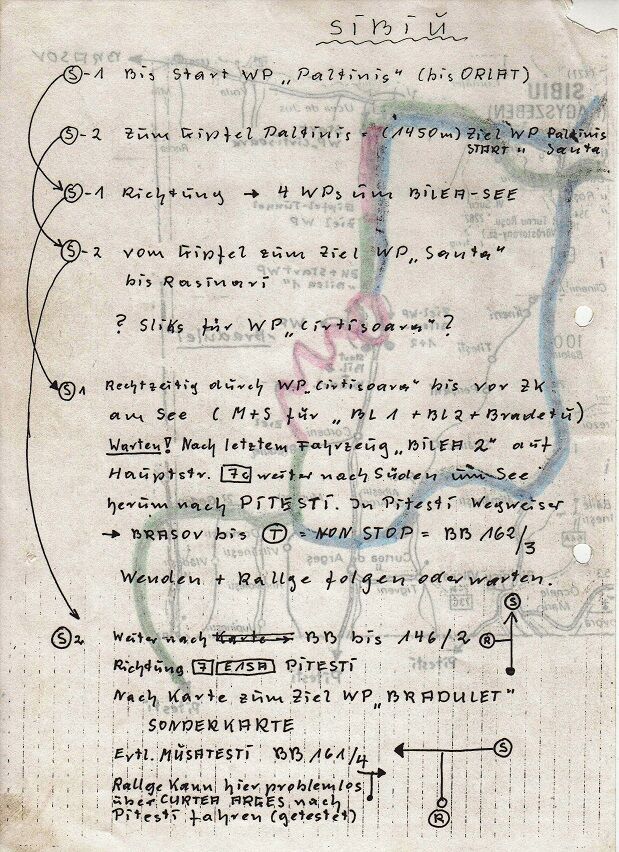 SIBIU
S-1 Bis Start WP „Paltinis" (bis ORLAT)
S-2 zum Gipfel Paltinis = (1450m) Ziel WP Paltinis
START " Santa
S-1 Richtung → 4 WPs um BILEA-SEE
S-2 vom Gipfel zum Ziel WP „Santa"
bis Rasinari
? Sliks für WP „Cirtisoara" ?
S1 Rechtzeitig durch WP „Cirtisoara" bis vor ZK
am See (M+S für „BL1 + BL2 + Bradetu)
Warten! Nach letztem Fahrzeug „BILEA 2" auf
Hauptstr. 7c weiter nach Süden um See
herum nach PITESTI. In Pitesti Wegweiser
→ BRASOV bis T = NON STOP = BB 162/3
Wenden + Rallge folgen oder warten.
S2 Weiter nach Karte → BB bis 146/2
S
R
Richtung 7 E15A PITESTI
Nach Karte zum Ziel WP „BRADULET"
SONDERKARTE
Evtl. MÜSATESTI BB 161/4
S
R
Rallge kann hier problemlos
über CURTEA ARGES nach
Pitesti fahren (getestet)